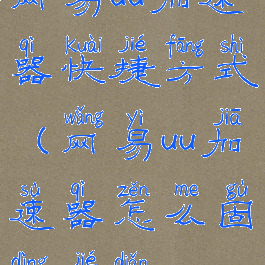 网易uu加速
qì kuài jié fāng shì
器快捷方式
wǎng yì jiā
(网易uu加
sù qì zěn me gù
速器怎么固
dìng jié diǎn